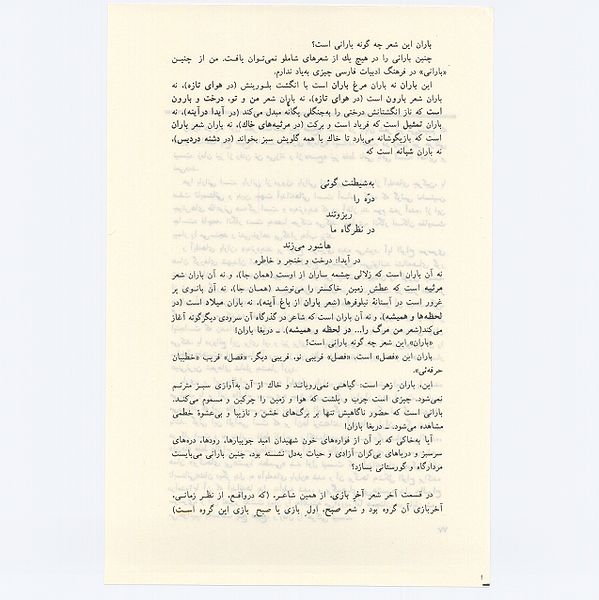 باران این شعر چه گونه بارانی است؟
چنین بارانی را در هیچ یك از شعرهای شاملو نمی‌توان یافت. من از چنین
«بارانی» در فرهنگ ادبیات فارسی چیزی به‌یاد ندارم.
این باران نه باران مرغ باران است با انگشت بلورینش (در هوای تازه)، نه
باران شعر بارون است (در هوای تازه)، نه باران شعر من و تو، درخت و بارون
است که ناز انگشتانش درختی را به‌جنگلی یگانه مبدل می‌کند (در آیدا درآینه)، نه
باران تمثیل است که فریاد است و برکت (در مرثیه‌های خاك)، نه باران شعر باران
است که بازیگوشانه می‌بارد تا خاك با همه گلویش سبز بخواند (در دشنه دردیس)،
نه باران شبانه است که
به‌شیطنت گوئی
درّه را
ریزوتند
در نظرگاه ما
هاشور می‌زند
در آیدا: درخت و خنجر و خاطره
نه آن باران است که زلالی چشمه ساران از اوست (همان جا)، و نه آن باران شعر
مرثیه است که عطش زمین خاکستر را می‌نوشد (همان جا)، نه آن بانوی پر
غرور است در آستانهٔ نیلوفرها (شعر باران از باغ آینه)، نه باران میلاد است (در
لحظه‌ها و همیشه)، و نه آن باران است که شاعر در گذرگاه آن سرودی دیگرگونه آغاز
می‌کند(شعر من مرگ را... در لحظه و همیشه). ــ دریغا باران!
«باران» این شعر چه گونه بارانی است؟
باران این «فصل» است. «فصل» فریبی نو، فریبی دیگر. «فصل» فریب «خطیبان
حرفه‌ئی».
این، باران زهر است: گیاهی نمی‌رویاند، و خاك از آن به‌آوازی سبز مترنم
نمی‌شود. چیزی است چرب و پلشت که هوا و زمین را چرکین و مسموم می‌کند.
بارانی است که حضور ناگاهیش تنها بر برگ‌های خشن و نازیبا و بی‌عشوهٔ خطمی
مشاهده می‌شود. ــ دریغا باران!
آیا به‌خاکی که بر آن از فواره‌های خون شهیدان امید جویبارها، رودها، دره‌های
سرسبز و دریاهای بی‌کران آزادی و حیات به‌دل نشسته بود، چنین بارانی می‌بایست
مردارگاه و گورستانی بسازد؟
در قسمت آخر شعر آخر بازی، از همین شاعر، (که درواقع، از نظر زمانی،
آخربازی آن گروه بود و شعر صبح، اول بازی یا صبح بازی این گروه است)